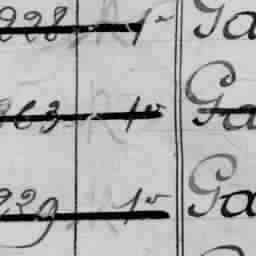 228 1º Ga
263 1º Ga
229 1º Ga